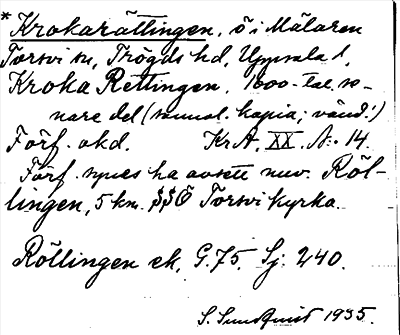 * Krokarättingen, ö i Mälaren
Torsvi sn, Trögds hd, Uppsala l,
Kroka Rettingen, 1600-tal. se-
nare del (samt. kopia; vänd!)
Förf. okd. Kr.A. XX. N:o 14.
Förf. synes ha avsett nuv. Röl-
lingen, 5 km. SSÖ Torsvi kyrka.
Röllingen ek, G.75. Sj. 240.
S. Sundquist 1935.